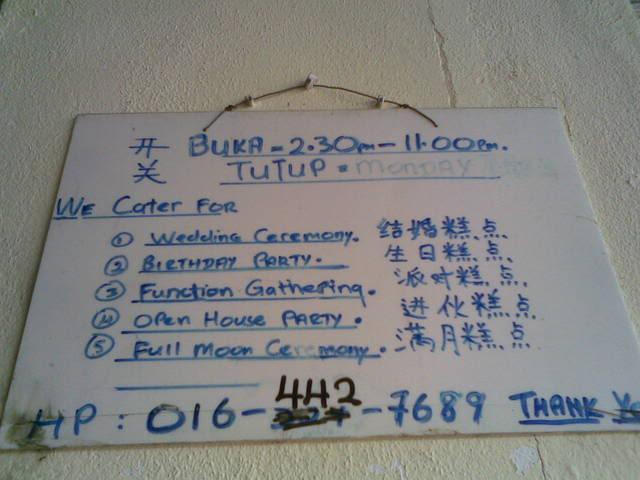 开 BUKA = 2.30pm - 11.00pm.
关 TUTUP = MONDAY
WE Cater FOR
① Wedding Ceremony. 结婚糕点
② BIRTHDAY PARTY. 生日糕点
③ Function Gathering. 派对糕点
④ OPen House PARTY. 进伙糕点
⑤ Full Moon Ceremony. 满月糕点
HP: 016-442-7689 THANK